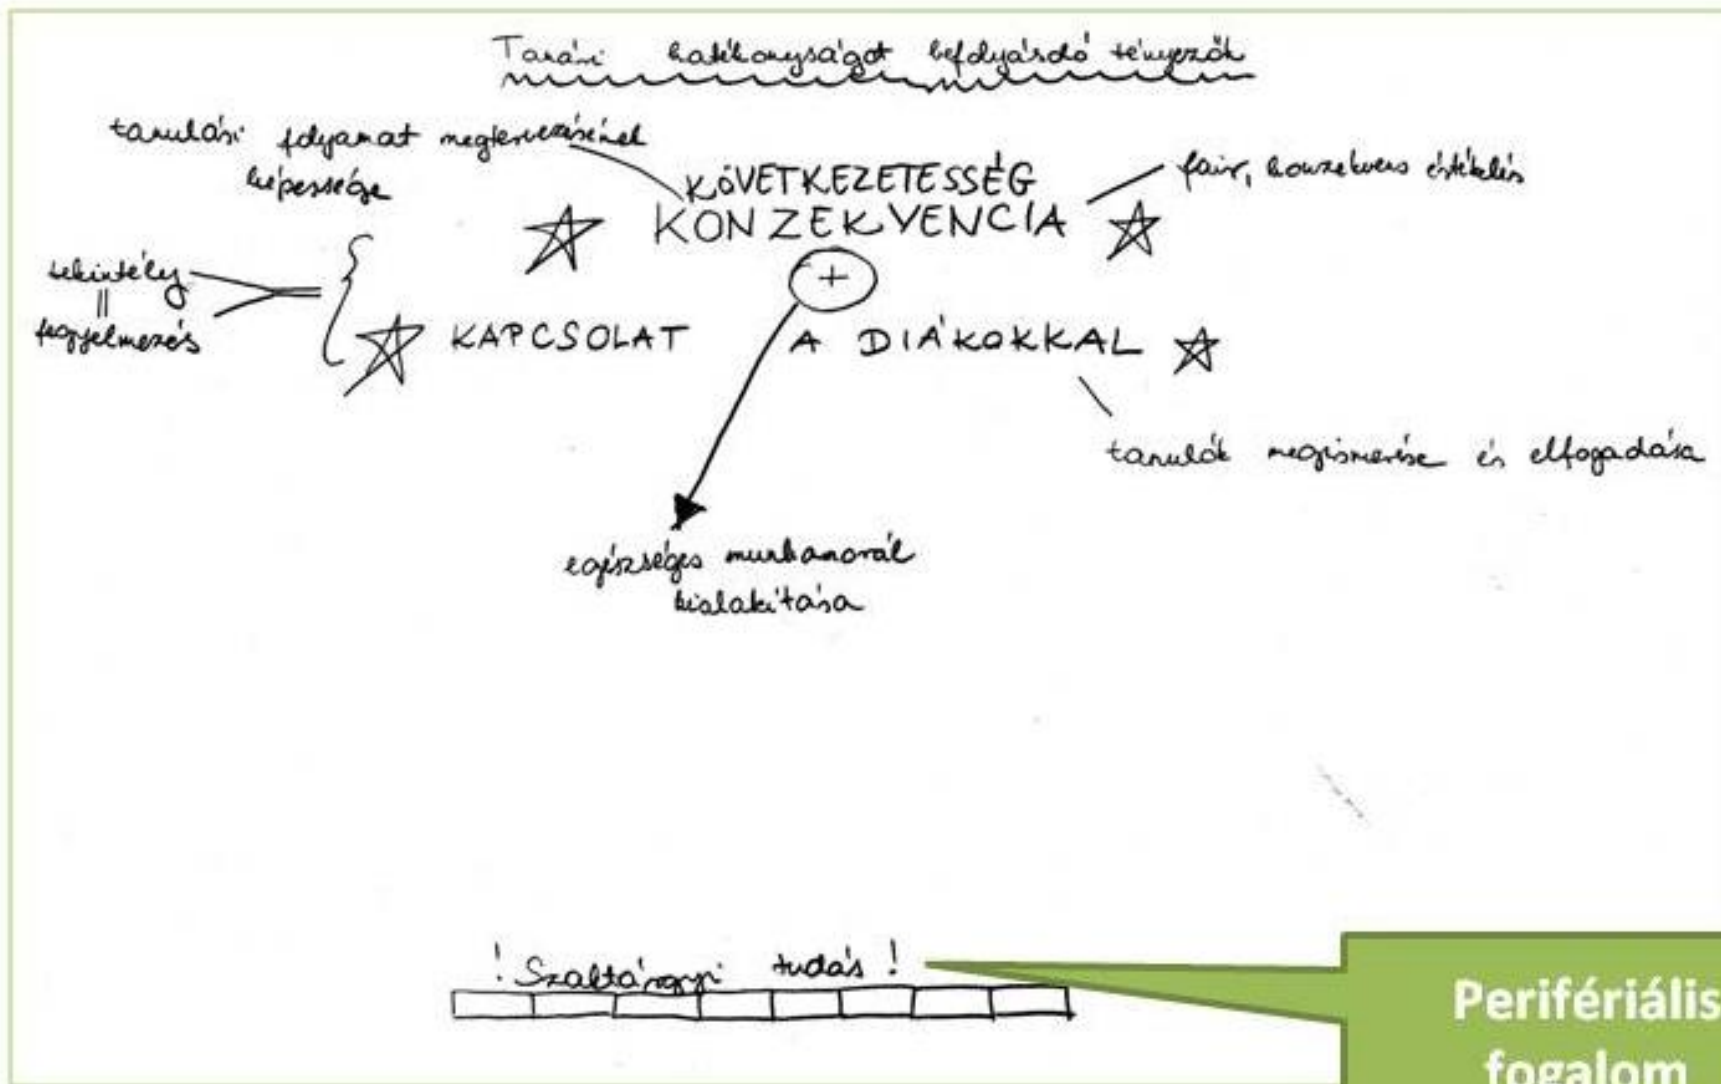 Tanári hatékonyságot befolyásoló tényezők
tanulási folyamat megtervezésének
képessége
KÖVETKEZETESSÉG
KONZEKVENCIA
fair, konzekvens értékelés
+
tekintély
||
fegyelmezés
KAPCSOLAT A DIÁKOKKAL
tanulók megismerése és elfogadása
egészséges munkamorál
kialakítása
! Szaktárgyi tudás !
Perifériális
fogalom